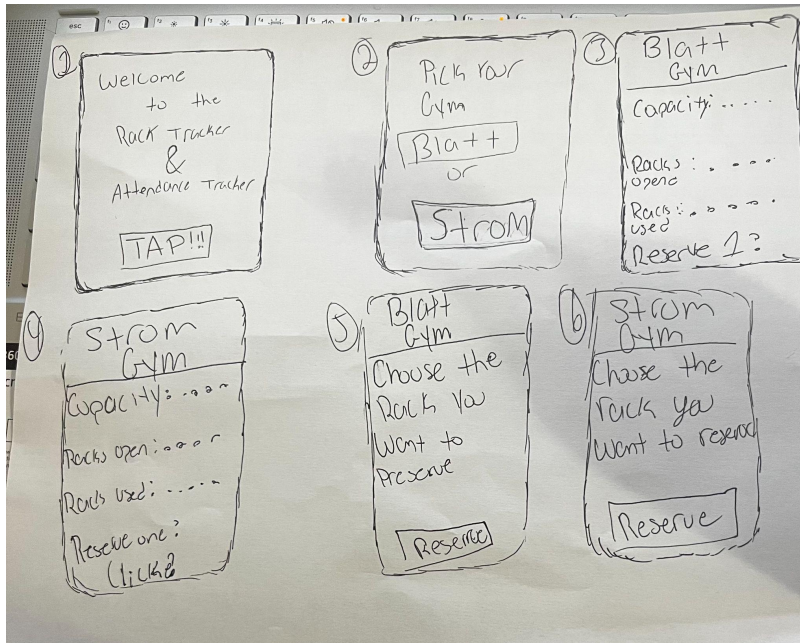 esc
1
Welcome
to the
Rack Tracker
&
Attendance Tracker
TAP!!!
2
Pick Your
Gym
Blatt
or
Strom
3
Blatt
Gym
Capacity:.....
Racks : . . . . .
opend
Racks : . . . . .
used
Reserve 1?
4
Strom
Gym
Capacity: ....
Racks open: ....
Racks used: .....
Reserve one?
5
Blatt
Gym
Choose the
Rack You
Want to
Preserve
Reserve
6
Strom
Gym
Choose the
rack you
want to reserve
Reserve